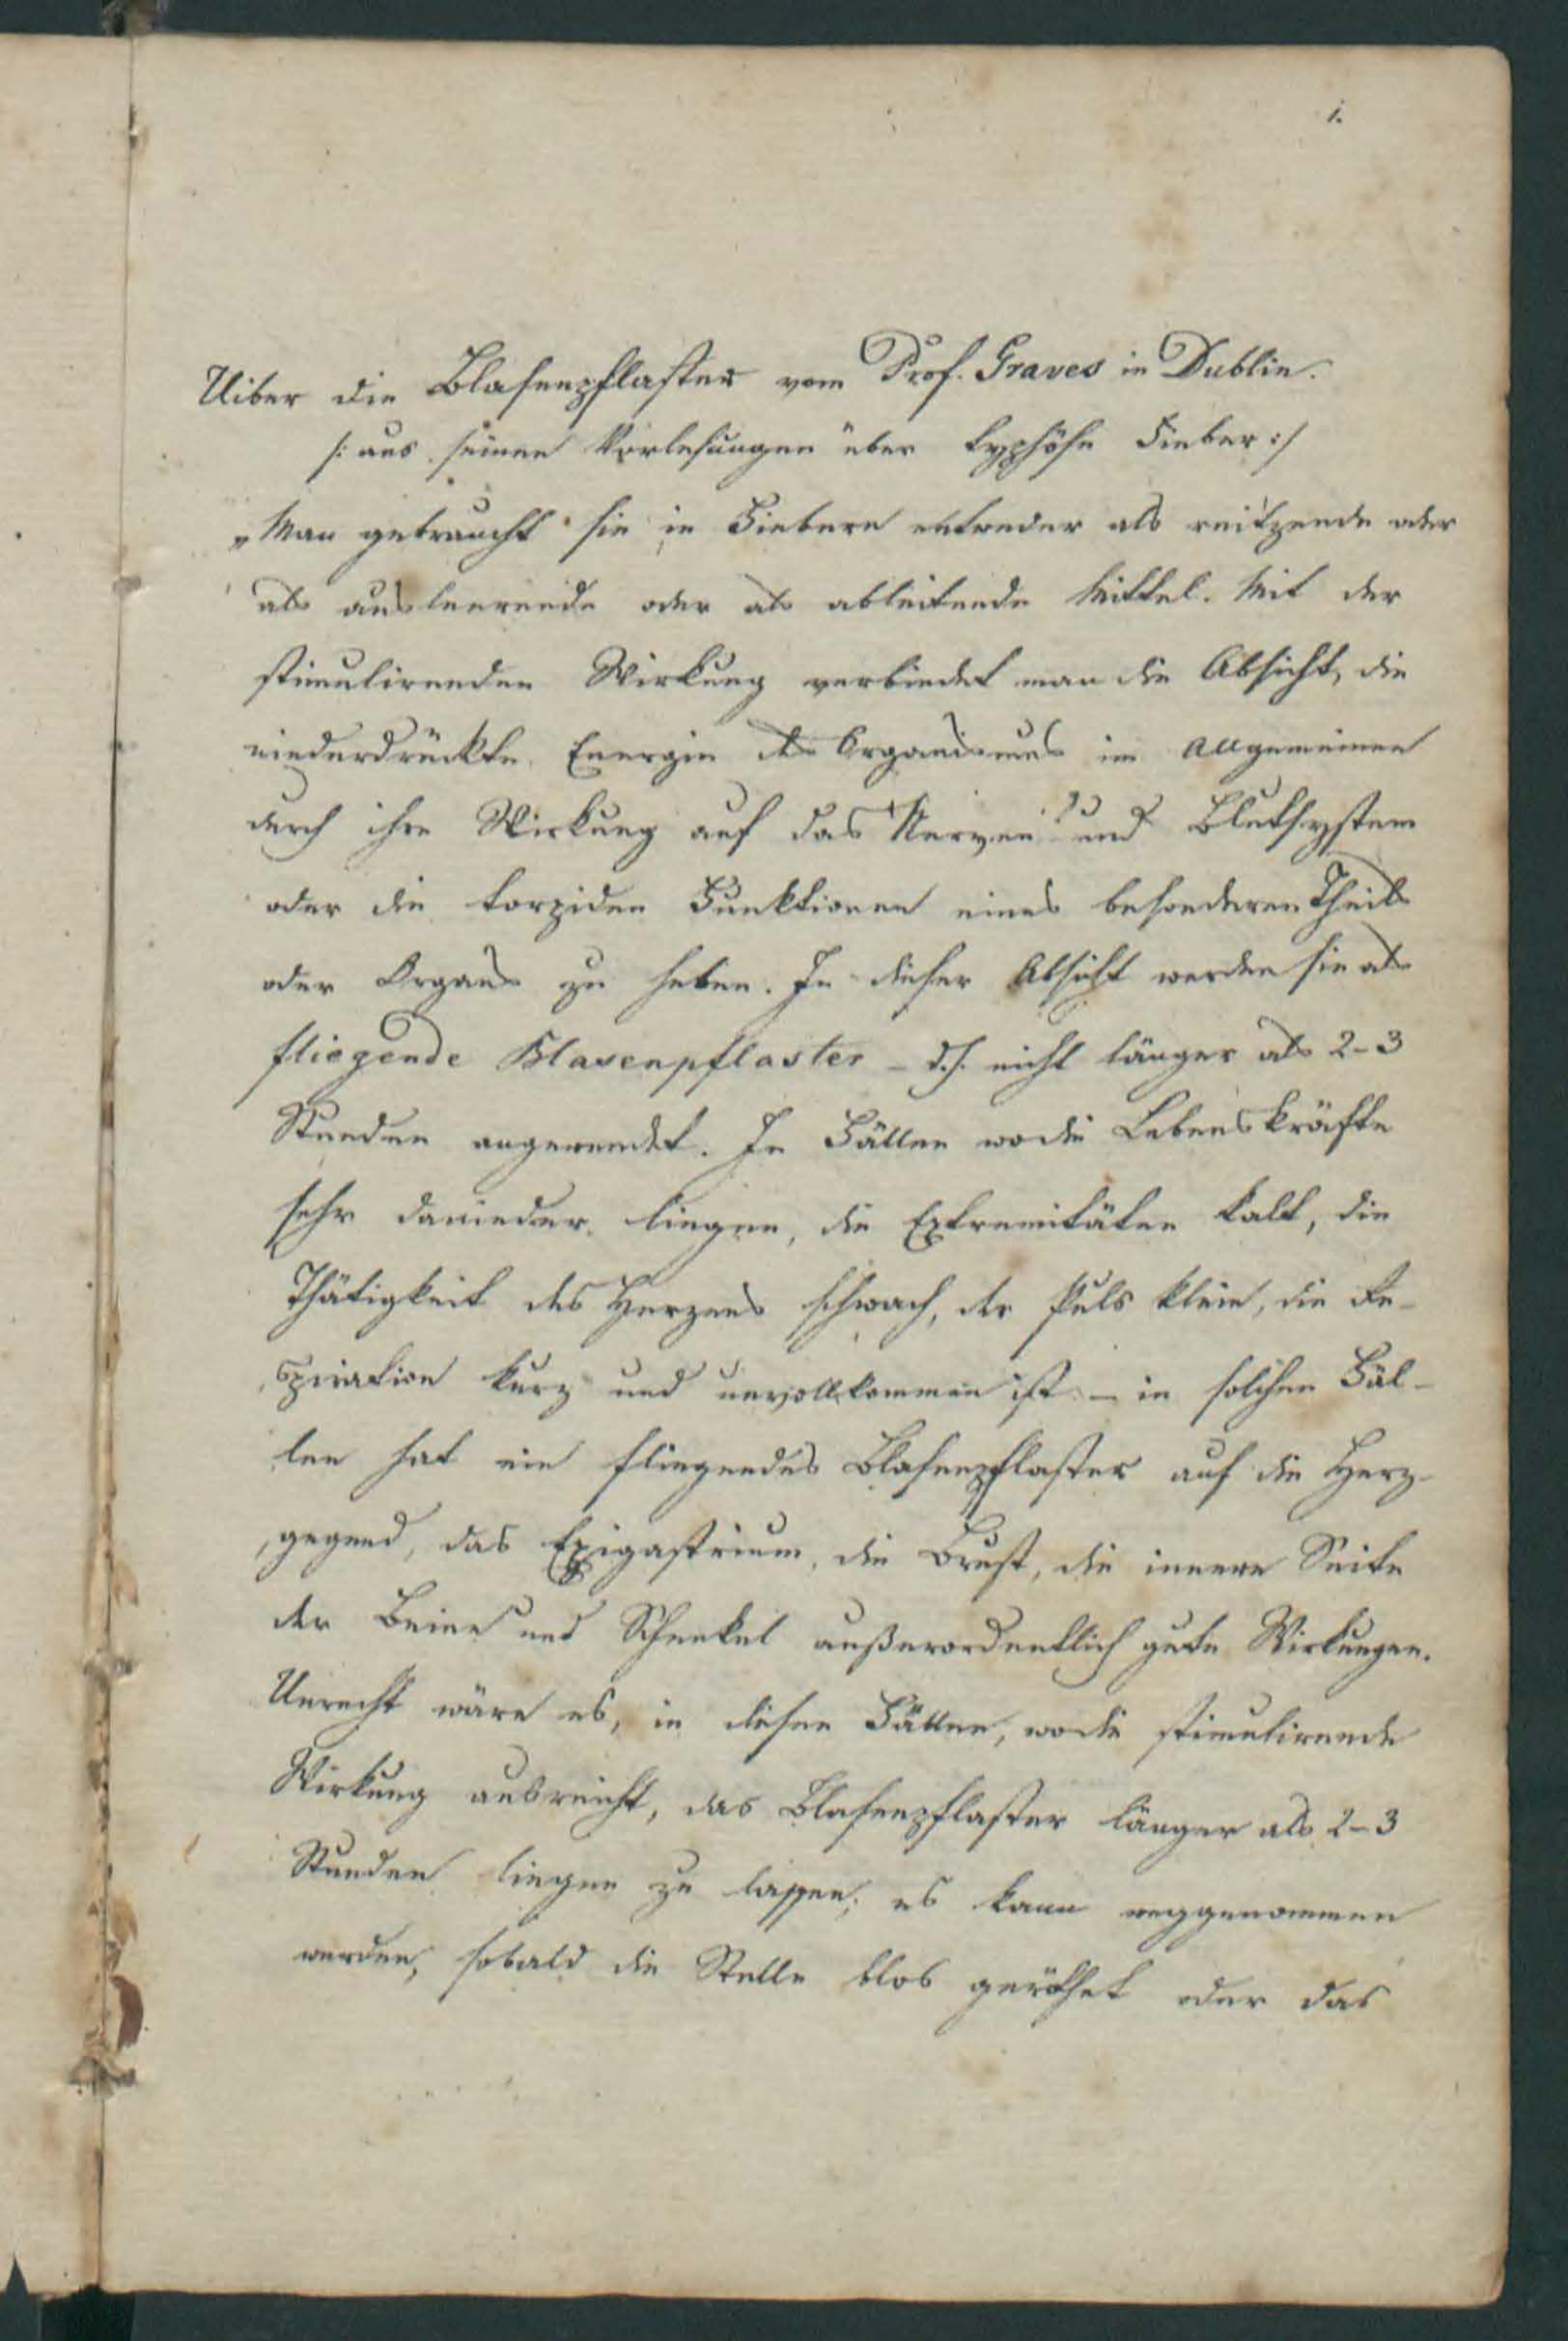 1.
Uiber die Blasenpflaster vom Prof. Graves in Dublin.
/: aus seinen Vorlesungen über typhöse Fieber :/
„Man gebraucht sie in Fiebern entweder als reitzende oder
als ausleerende oder als ableitende Mittel. Mit der
stimulirenden Wirkung verbindet man die Absicht, die
niederdrückte Energie des Organismus im Allgemeinen
durch ihre Wirkung auf das Nerven- und Blutsystem
oder die torpiden Funktionen eines besonderen Theils
oder Organs zu heben. In dieser Absicht werden sie als
fliegende Blasenpflaster – d.h. nicht länger als 2–3
Stunden angewendet. In Fällen wo die Lebenskräfte
sehr danieder liegen, die Extremitäten kalt, die
Thätigkeit des Herzens schwach, der Puls klein, die Re-
spiration kurz und unvollkommen ist – in solchen Fäl-
len hat ein fliegendes Blasenpflaster auf die Herz-
gegend, das Epigastrium, die Brust, die innere Seite
der Beine und Schenkel außerordentlich gute Wirkungen.
Unrecht wäre es, in diesen Fällen, wo die stimulirende
Wirkung ausreicht, das Blasenpflaster länger als 2–3
Stunden liegen zu lassen; es kann weggenommen
werden, sobald die Stelle blos geröthet oder das